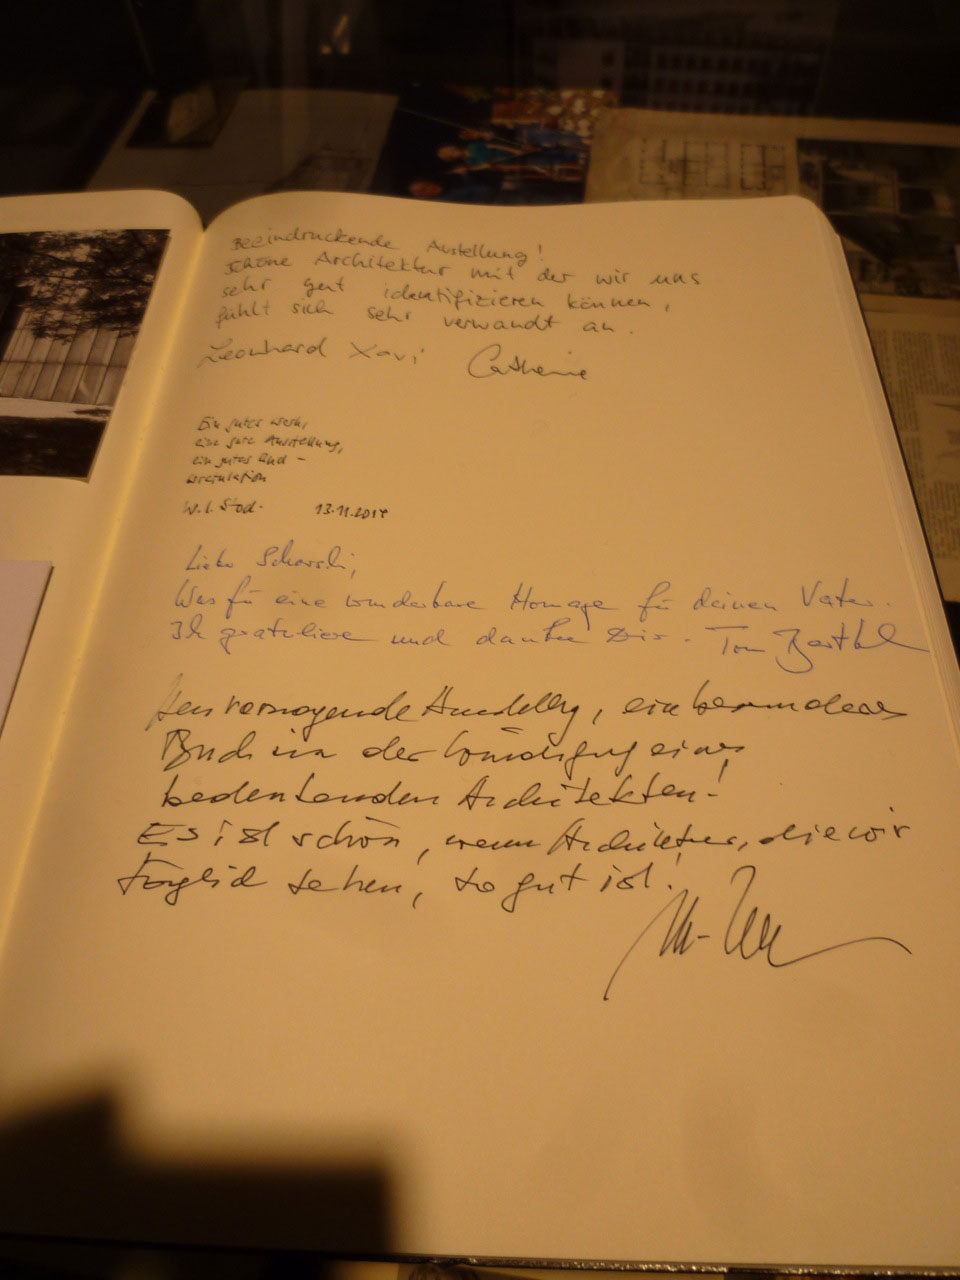 Beeindruckende Austellung!
schöne Architektur mit der wir uns
sehr gut identifizieren können,
fühlt sich sehr verwandt an.
Leonhard Xavi Catherine
Ein gutes Werk,
eine gute Ausstellung,
ein gutes Buch –
Gratulation
W.
Liebe
Was für eine wunderbare Homage für deinen Vater.
Ich gratuliere und danke Dir. Tom
Hervorragende Ausstellung, ein besonderes
Buch in der Würdigung eines
bedeutenden Architekten!
Es ist schön, wenn Architektur, die wir
täglich sehen, so gut ist!